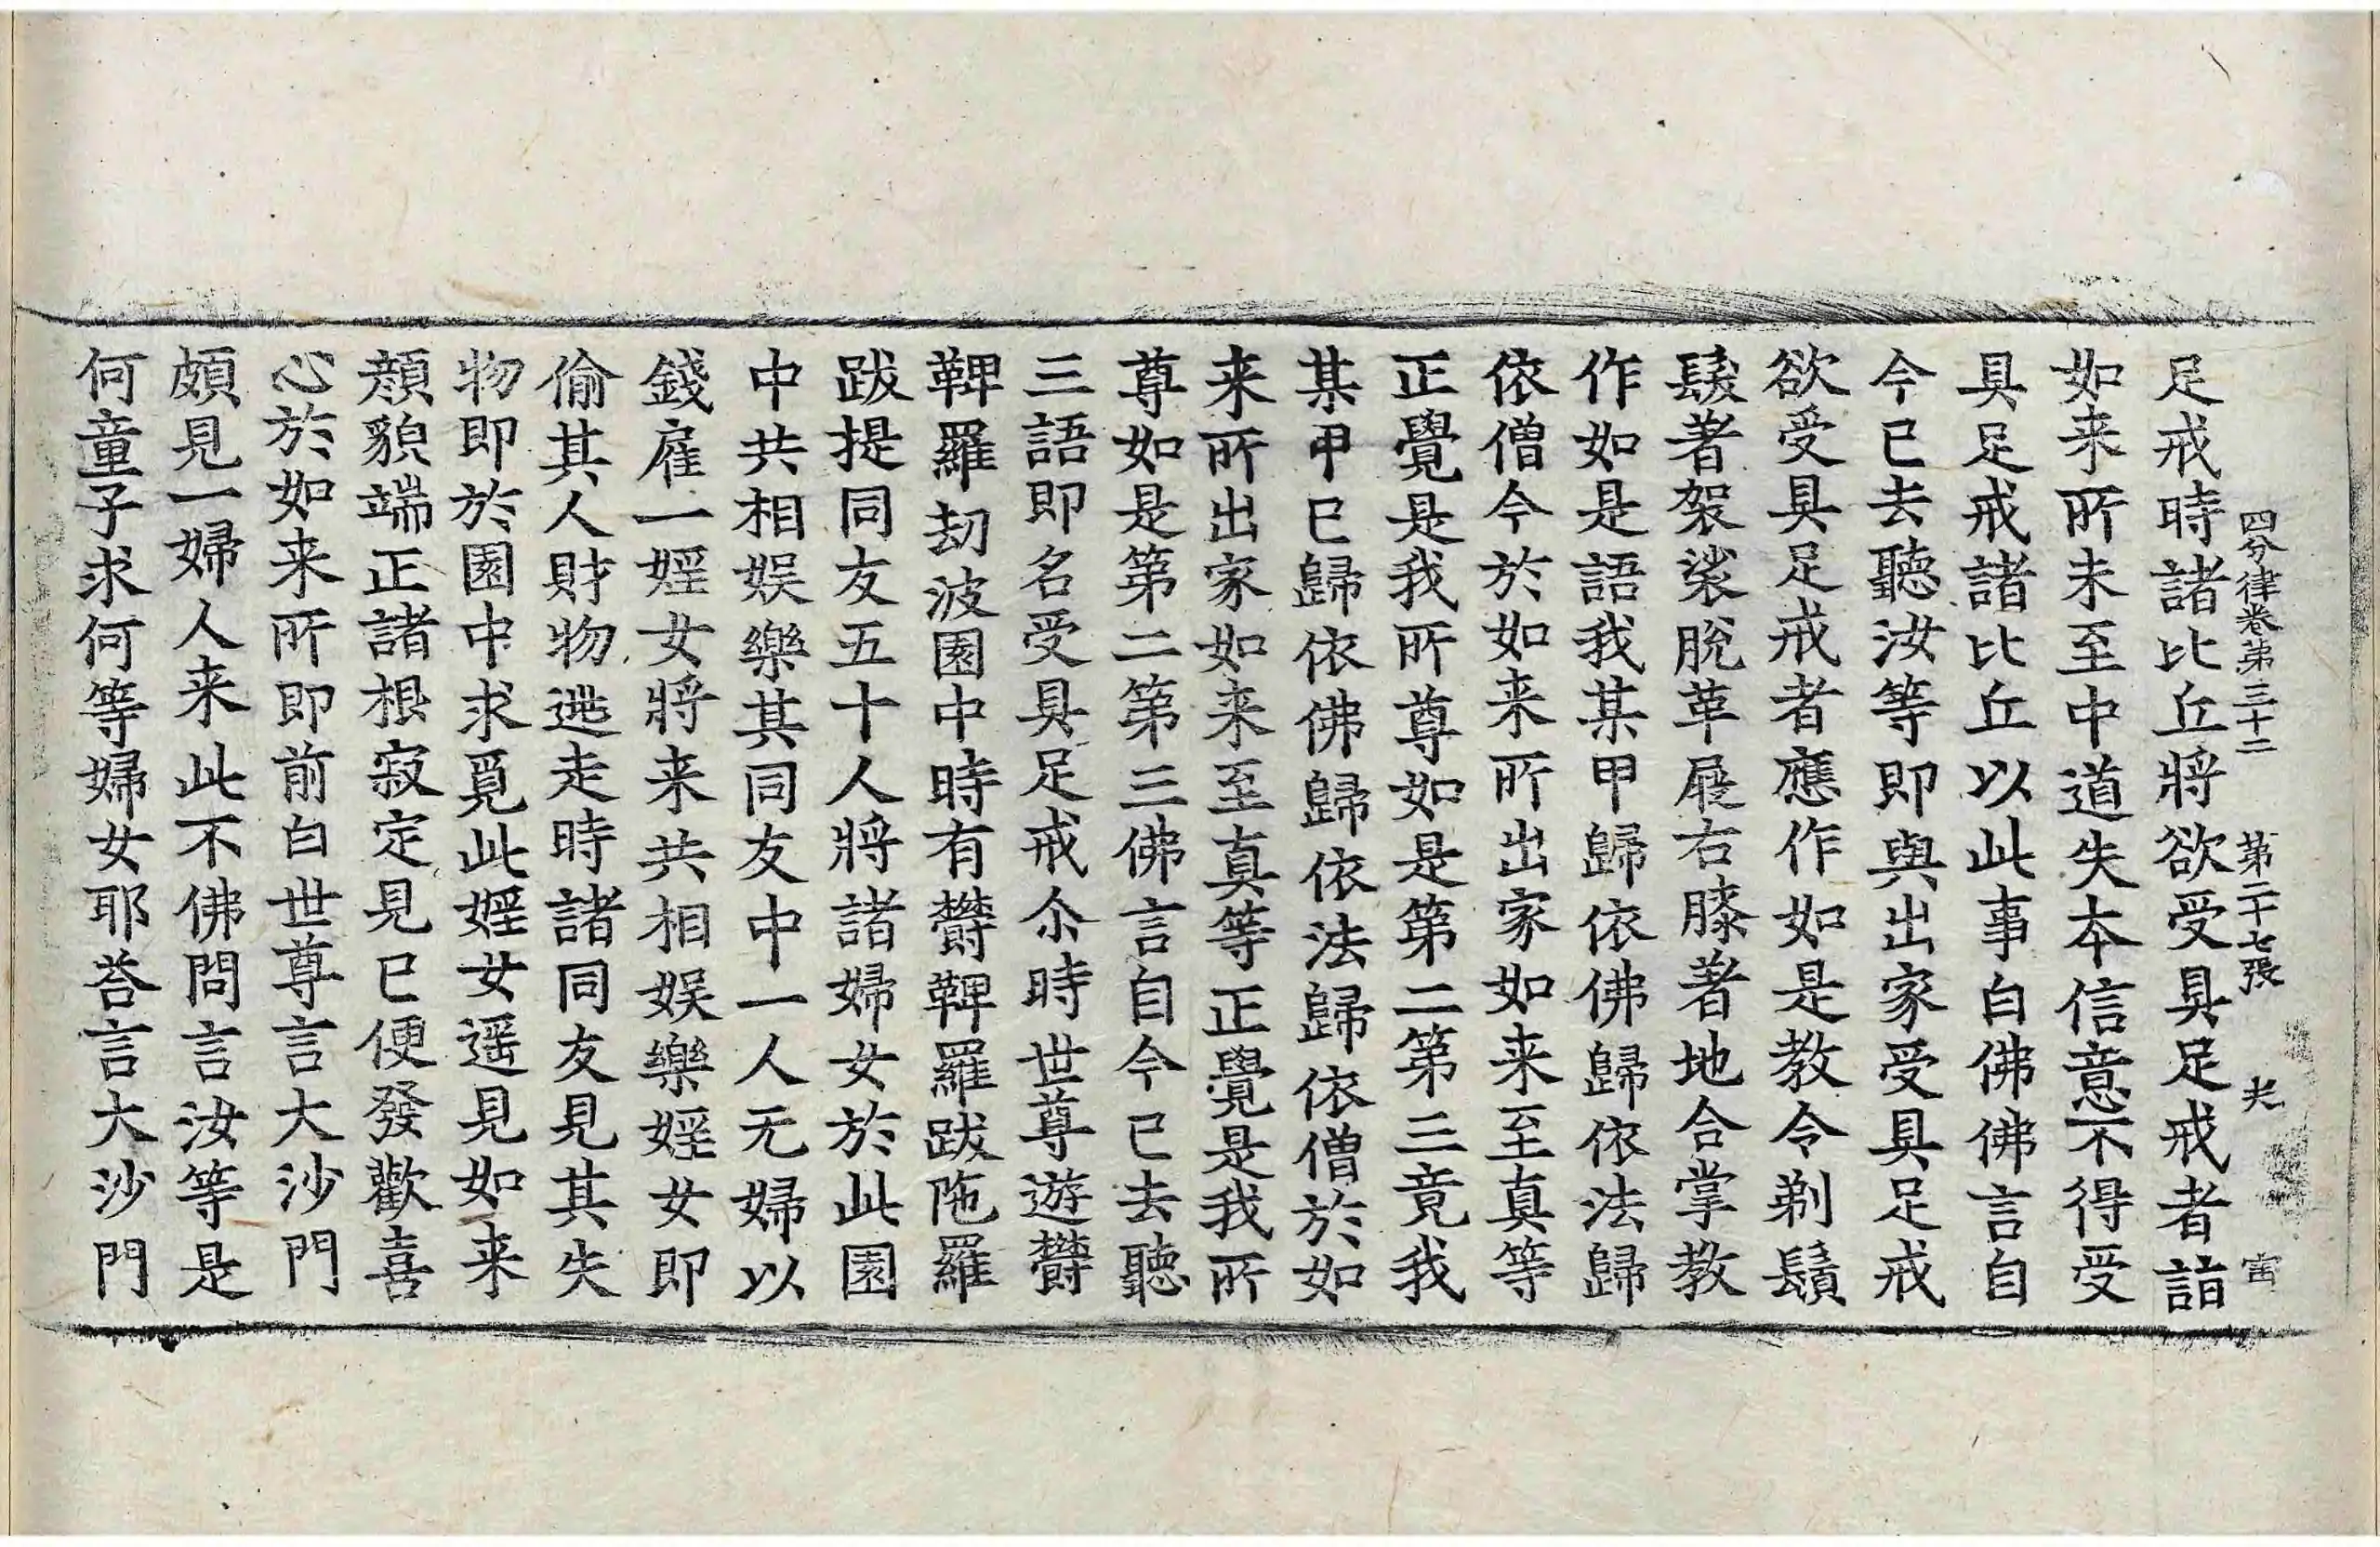 四分律卷第三十二 第二十七張 㐲 宙
足戒時諸比丘將欲受具足戒者詣
如来所未至中道失夲信意不得受
具足戒諸比丘以此事白佛佛言自
今已去聽汝等即與出家受具足戒
欲受具足戒者應作如是教令剃鬚
髮著袈裟脫革屣右膝著地合掌教
作如是語我某甲歸依佛歸依法歸
依僧今於如来所出家如来至真等
正覺是我所尊如是第二第三竟我
某甲已歸依佛歸依法歸依僧於如
来所出家如来至真等正覺是我所
尊如是第二第三佛言自今已去聽
三語即名受具足戒尒時世尊遊欝
鞞羅劫波園中時有欝鞞羅跋陁羅
跋提同友五十人將諸婦女於此園
中共相娛樂其同友中一人无婦以
錢雇一婬女將来共相娛樂婬女即
偷其人財物逃走時諸同友見其失
物即於園中求覓此婬女遥見如来
顏貌端正諸根寂定見已便發歡喜
心於如来所即前白世尊言大沙門
頗見一婦人来此不佛問言汝等是
何童子求何等婦女耶荅言大沙門